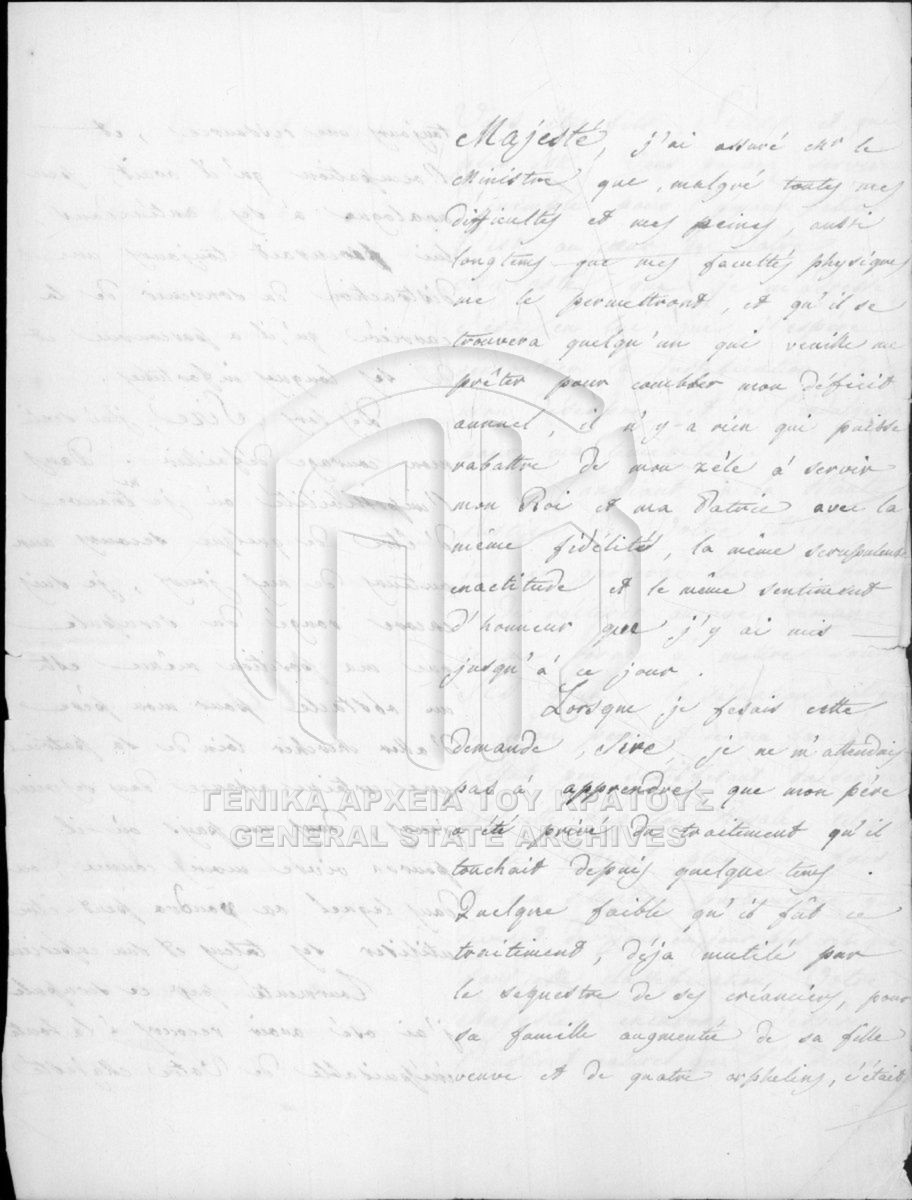 Majesté, j'ai assuré Mr le
Ministre que, malgré toutes mes
difficultés et mes peines, aussi
longtems que mes facultés physiques
me le permettront, et qu'il se
trouvera quelqu'un qui veuille me
prêter pour combler mon déficit
annuel, il n'y a rien qui puisse
rabattre de mon zéle à servir
mon Roi et ma Patrie avec la
même fidélité, la même scrupuleuse
exactitude et le même sentiment
d'honneur que j'y ai mis
jusqu'à ce jour.
Lorsque je fesais cette
demande, Sire, je ne m'attendais
pas à apprendre, que mon père
a été privé du traitement qu'il
touchait depuis quelque tems.
Quelque faible qu'il fût ce
traitement, déja mutilé par
le sequestre de ses créanciers, pour
sa famille augmentée de sa fille
veuve et de quatre orphelins, c'était
ΓΕΝΙΚΑ ΑΡΧΕΙΑ ΤΟΥ ΚΡΑΤΟΥΣ
GENERAL STATE ARCHIVES